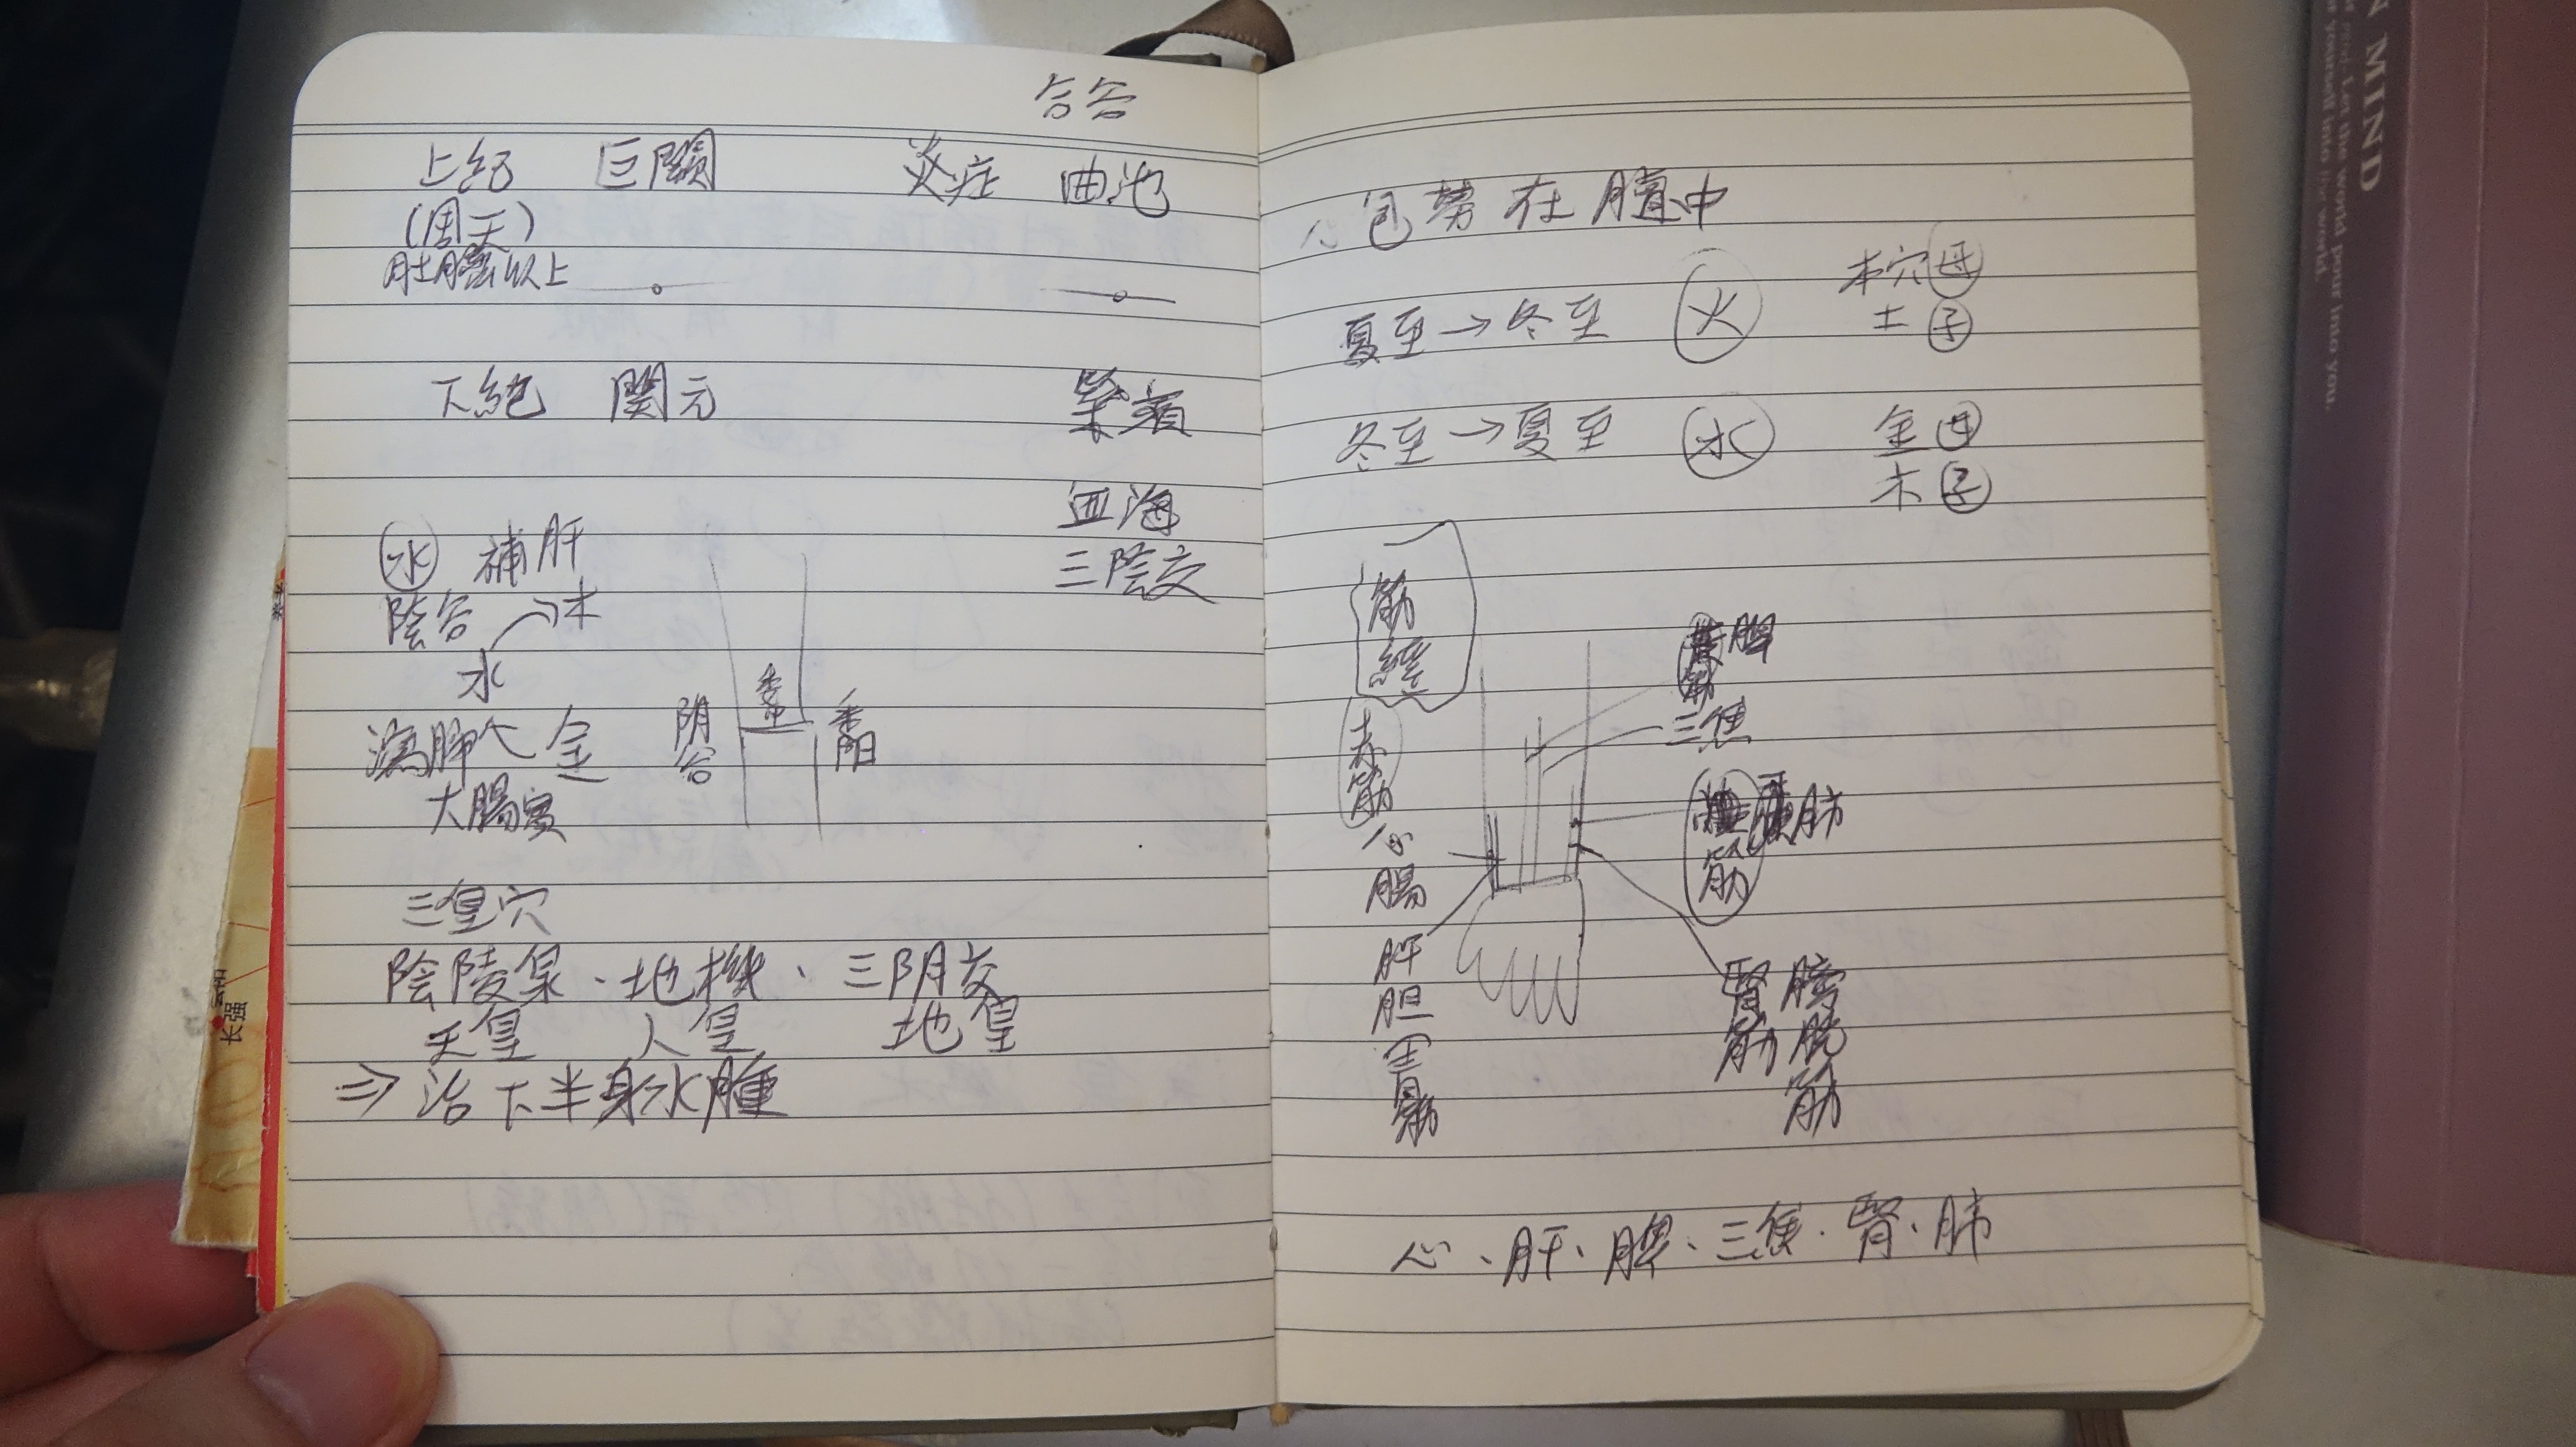 合谷
上絕 巨闕 炎症 曲池
(周天)
肚臍以上
下絕 関元 築賓
血海
三陰交
水 補肝
陰谷 → 木
水
瀉肺 金
大腸實
阴谷 委中 委陽
三皇穴
陰陵泉、地機、三阴交
天皇 人皇 地皇
⇒ 治下半身水腫
长强
包募在膻中
夏至→冬至 火 本穴 母
土 子
冬至→夏至 水 金 母
木 子
筋經
赤筋
心腸
肝胆青筋
脾
三焦
肺
筋
腎筋
膀胱筋
心、肝、脾、三焦、腎、肺
MIND
Let the world pour into you.